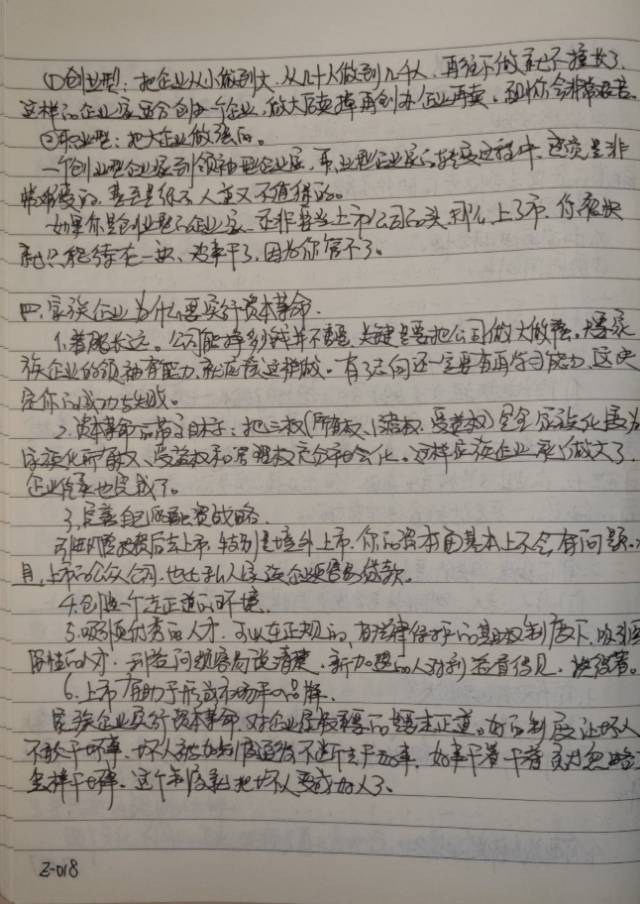 ①创业型：把企业从小做到大，从几十人做到几千人，再往下做就不擅长了。
这样的企业家适合创办一个企业，做大后卖掉再创办企业再卖，
②职业型：把大企业做强的。
一个创业型企业家到领袖型企业家、职业型企业家的转变过程中，这是非
常难受的，甚至是
如果你是创业型的企业家，还非要当上市公司的头，那么，上了市，你很快
就只能待在一边、没事干了，因为你管不了。
四、家族企业为什么要实行资本革命。
1、着眼长远。公司能挣多少钱并不重要，关键是要把公司做大做强。
族企业的领袖有能力，就应该这样做。有了志向还一定要有再学习能力，这决
定你的成功与失败。
2、资本革命的带子目标：把三权(所有权、管理权、受益权)完全家族化变为
家族化所有权、受益权和管理权充分社会化。这样家族企业就做大了，
企业传承也完成了。
3、完善自己的融资战略。
引进风险投资后去上市，特别是境外上市，你的资本面基本上不会有问题。
且，上市的公众公司，也比私人家族企业更容易贷款。
4、创造一个走正道的环境。
5、吸引优秀的人才，可以在正规的、有法律保护的期权制度下，吸引
的人才，利益问题容易说清楚，新加盟的人对利益看得见，
6、上市有助于形成市场平的品牌。
家族企业实行资本革命，对企业最重要的是要走正道。好的制度让坏人
不敢干坏事，坏人不断去干好事，好事干着干着
怎样干坏事。这个制度就把坏人变成好人了。
Z-018